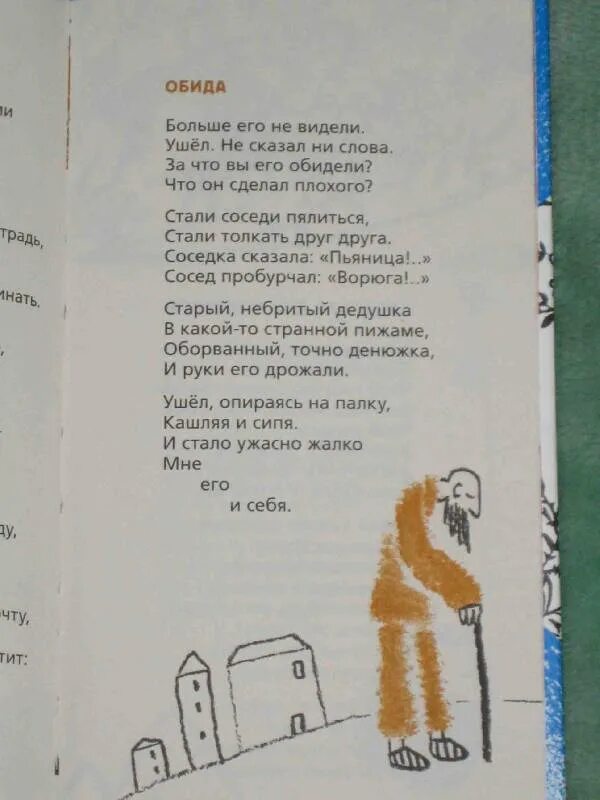 ОБИДА
Больше его не видели.
Ушёл. Не сказал ни слова.
За что вы его обидели?
Что он сделал плохого?
Стали соседи пялиться,
Стали толкать друг друга.
Соседка сказала: «Пьяница!..»
Сосед пробурчал: «Ворюга!..»
Старый, небритый дедушка
В какой-то странной пижаме,
Оборванный, точно денюжка,
И руки его дрожали.
Ушёл, опираясь на палку,
Кашляя и сипя.
И стало ужасно жалко
Мне
его
и себя.